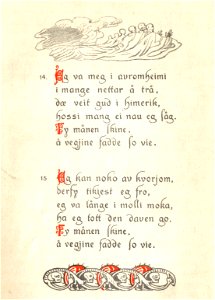 14. Eg va meg i avromheimi
i mange nettar å trå,
dæ veit gud i himerik,
hossi mang ei nau eg såg.
Fy månen skine.
å vegjine fadde so vie.
15. Eg kan noko av kvorjom,
derfy tikjest eg fro,
eg va länge i molli moka,
ha eg tott den daven go.
Fy månen skine.
å vegjine fadde so vie.